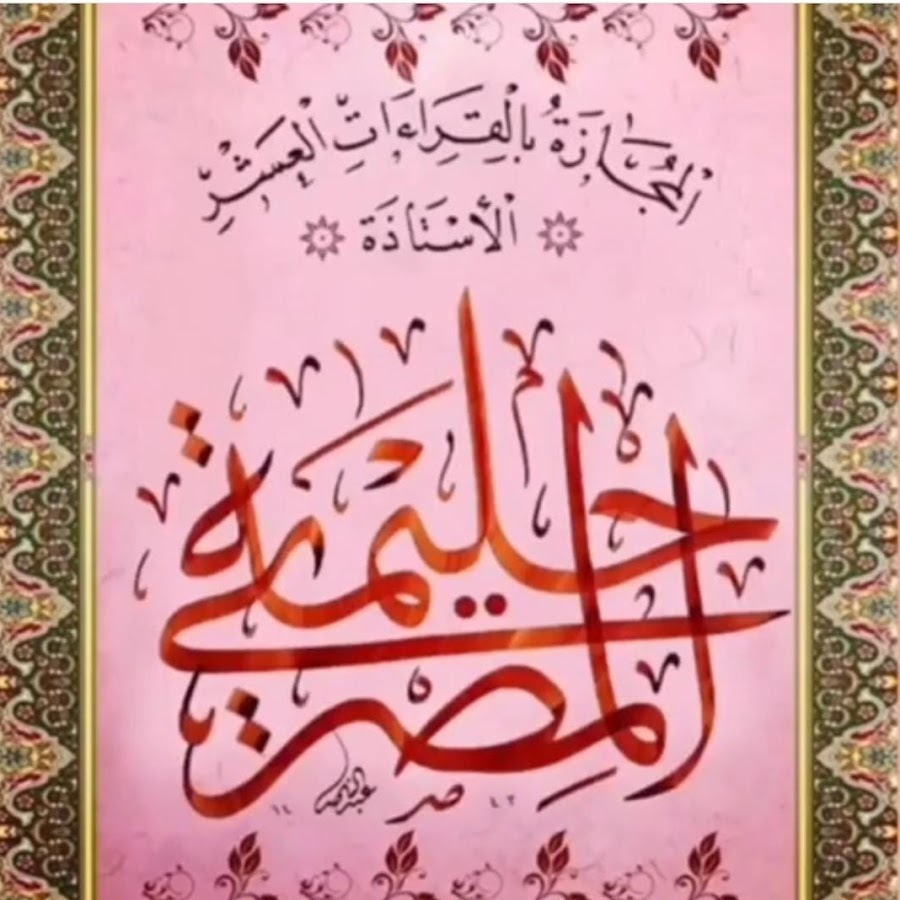 الْمُجَازَةُ بِالْقِرَاءَاتِ الْعَشْرِ
الْأُسْتَاذَة
حليمة
المصري